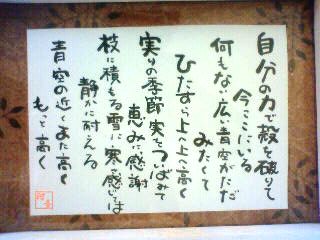 自分の力で殻を破りて
今ここにいる
何もない広い青空がただ
みたくて
ひたすら上へ上へ高く
実りの季節実をついばみて
恵みに感謝
枝に積もる雪に寒さ感じは
静かに耐える
青空の近くまた高く
もっと高く